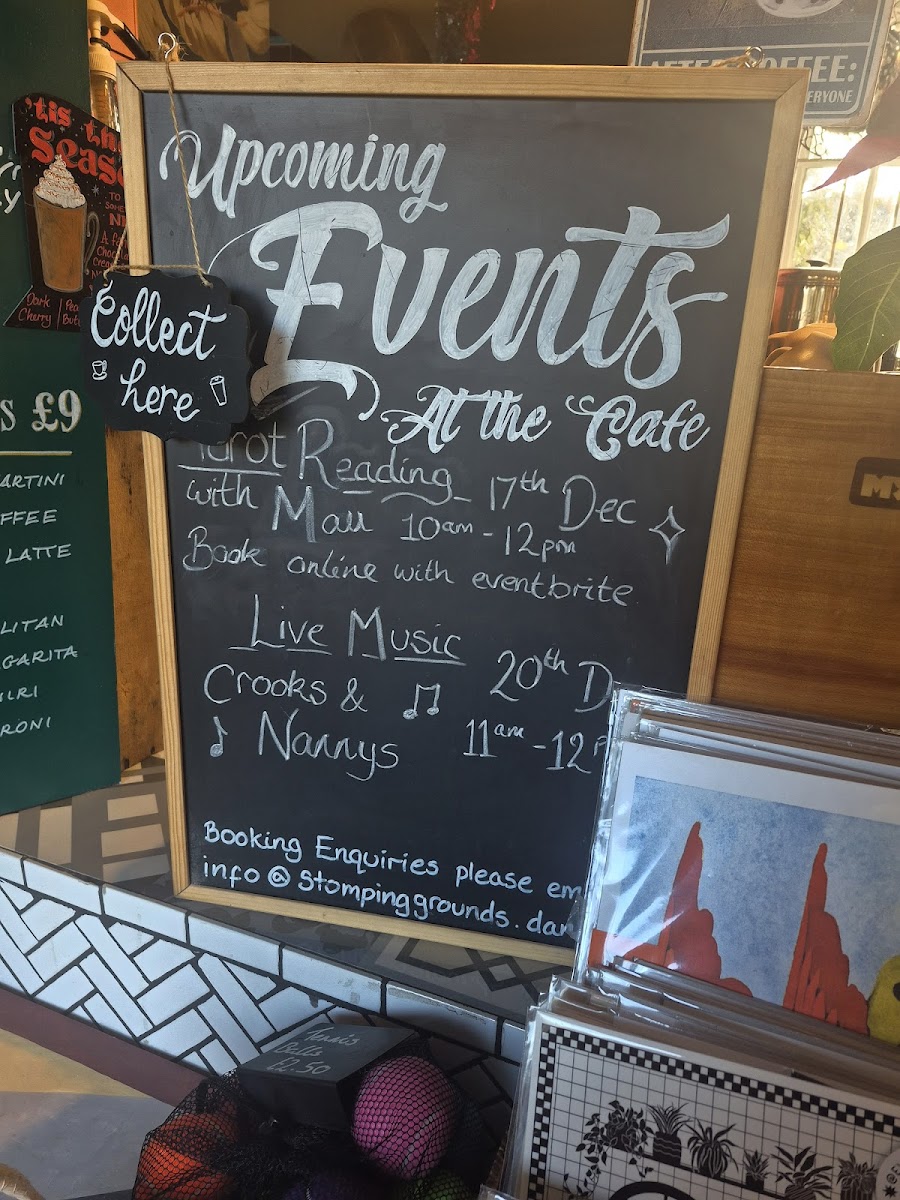 Upcoming
Events
At the Cafe
Tarot Reading 17th Dec
with Mau 10am - 12pm
Book online with eventbrite
Live Music
20th D
Crooks &
Nannys 11am - 12p
Booking Enquiries please em
info @ Stompinggrounds. dar
Collect
here
'tis the
Season
Dark
Cherry
S £9
ARTINI
FFEE
LATTE
LITAN
GARITA
IRI
RONI
AFTER COFFEE:
ERYONE
Tennis
Balls
£2.50